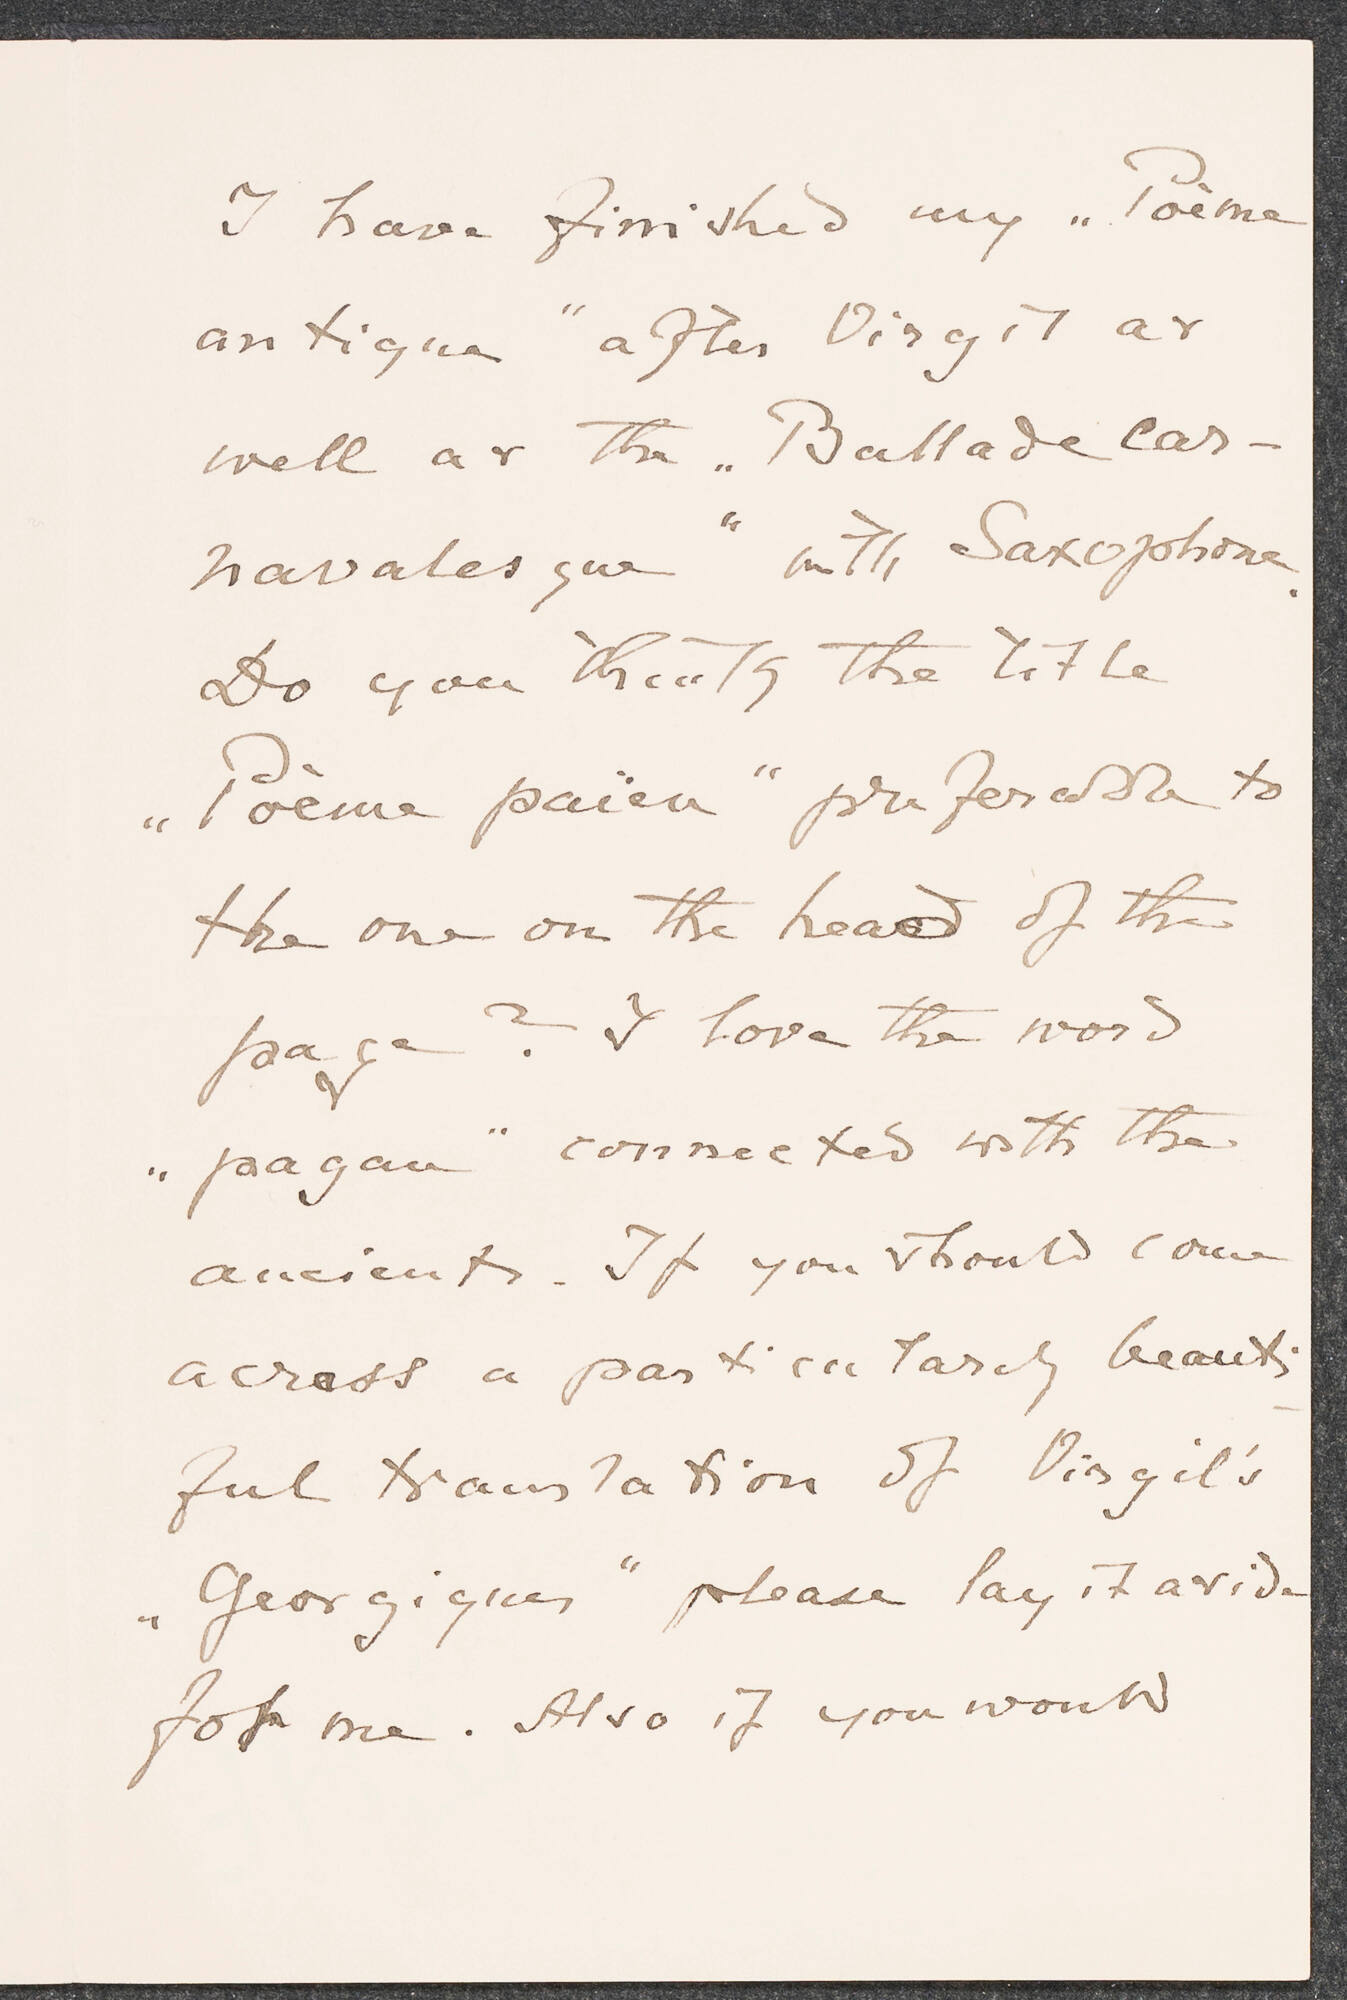 I have finished my „Poème
antique“ after Virgil as
well as the „Ballade car-
navalesque“ with Saxophone.
Do you think the title
„Poème païen“ preferable to
the one on the head of the
page? I love the word
„pagan“ connected with the
ancients. If you should come
across a particularly beauti-
ful translation of Virgil's
„Georgiques“ please lay it aside
for me. Also if you would